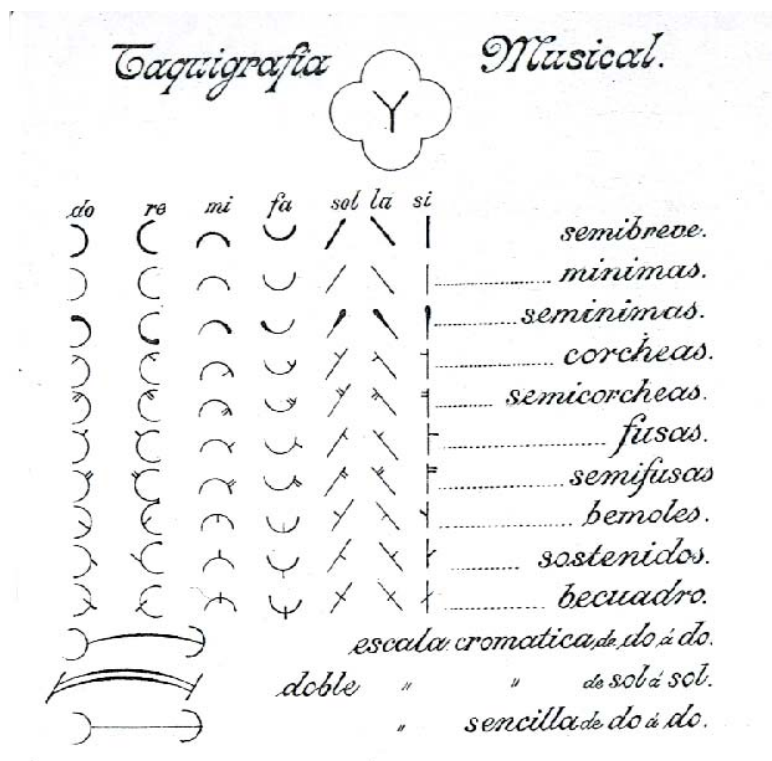 Taquigrafia Musical.
Y
do re mi fa sol la si
semibreve.
minimas.
seminimas.
corcheas.
semicorcheas.
fusas.
semifusas
bemoles.
sostenidos.
becuadro.
escala cromatica de do á do.
doble " " de sol á sol.
" sencilla de do á do.